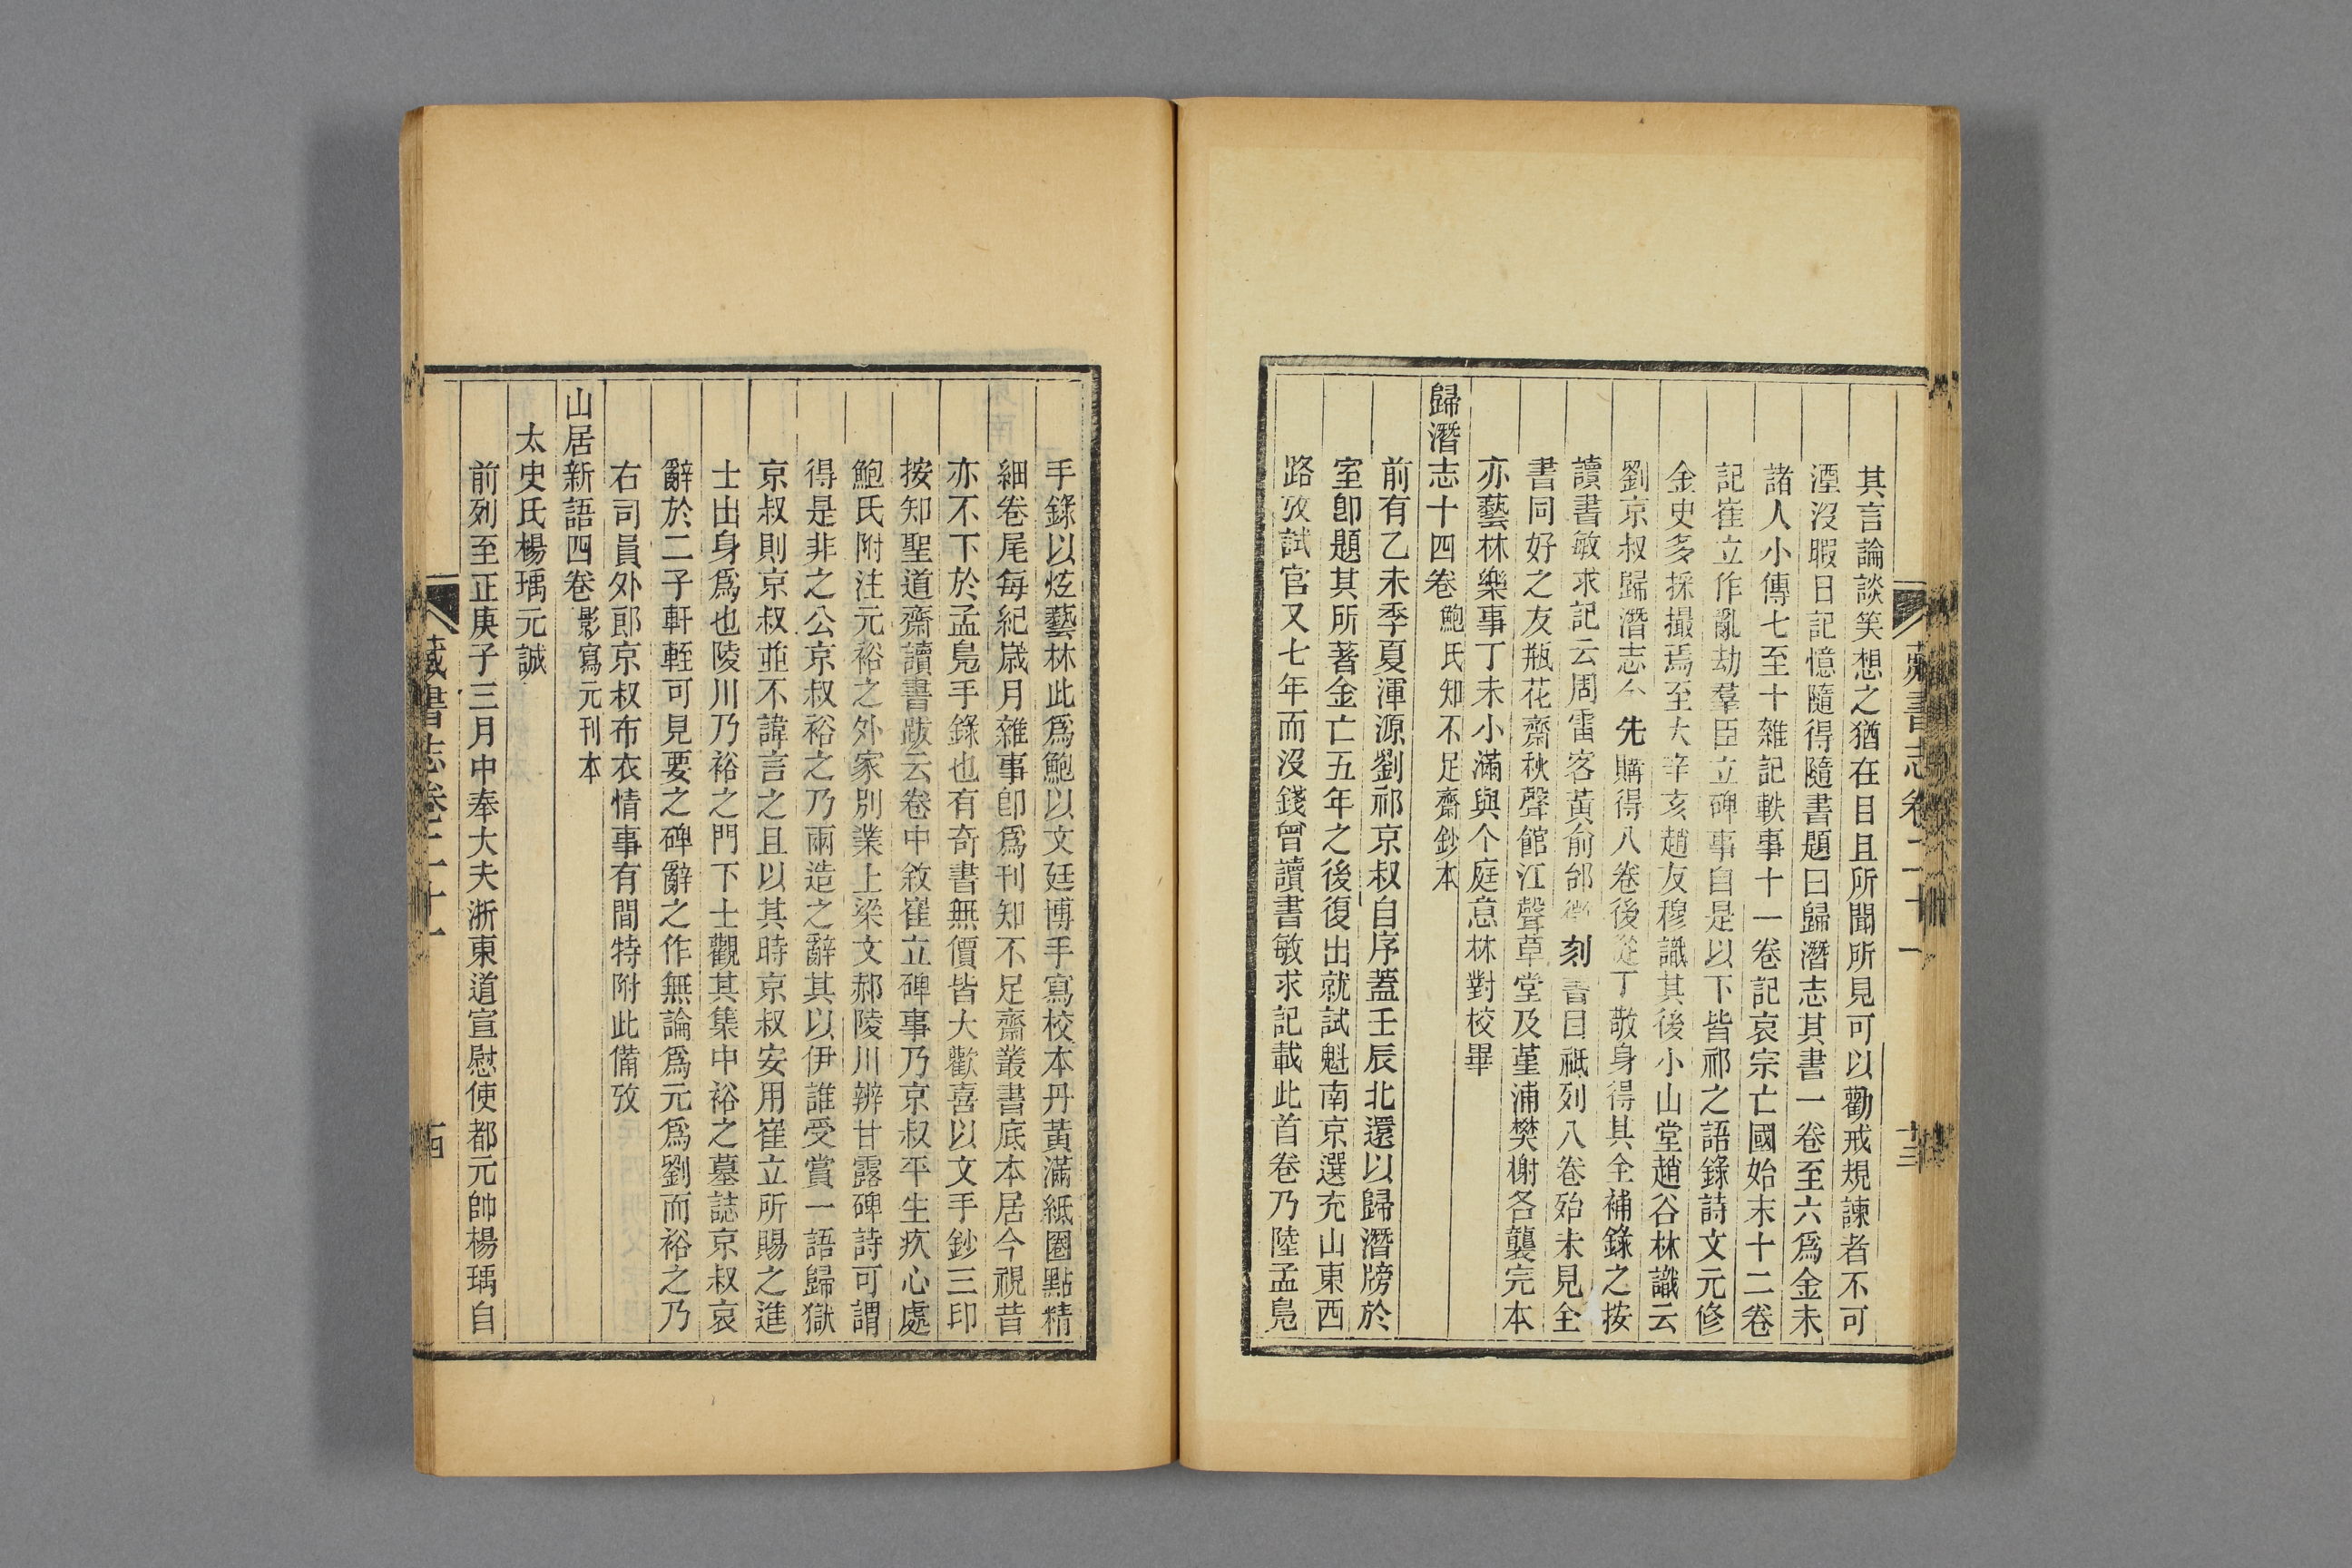 其言論談笑想之猶在目且所聞所見可以勸戒規諫者不可
湮沒暇日記憶隨得隨書題曰歸潛志其書一卷至六爲金末
諸人小傳七至十雜記軼事十一卷記哀宗亡國始末十二卷
記崔立作亂劫羣臣立碑事自是以下皆祁之語錄詩文元修
金史多採撮焉至大辛亥趙友穆識其後小山堂趙谷林識云
劉京叔歸潛志 先購得八卷後從丁敬身得其全補錄之按
讀書敏求記云周雷客黃俞邰 刻書目祗列八卷殆未見全
書同好之友瓶花齋秋聲館江聲草堂及堇浦樊榭各襲完本
亦藝林樂事丁未小滿與个庭意林對校畢
歸潛志十四卷 鮑氏知不足齋鈔本
前有乙未季夏渾源劉祁京叔自序蓋壬辰北還以歸潛牓於
室卽題其所著金亡五年之後復出就試魁南京選充山東西
路攷試官又七年而沒錢曾讀書敏求記載此首卷乃陸孟鳧
手錄以炫藝林此爲鮑以文廷博手寫校本丹黃滿紙圈點精
細卷尾每紀歲月雜事卽爲刊知不足齋叢書底本居今視昔
亦不下於孟鳧手錄也有奇書無價皆大歡喜以文手鈔三印
按知聖道齋讀書跋云卷中敘崔立碑事乃京叔平生疚心處
鮑氏附注元裕之外家別業上梁文郝陵川辨甘露碑詩可謂
得是非之公京叔裕之乃兩造之辭其以伊誰受賞一語歸獄
京叔則京叔並不諱言之且以其時京叔安用崔立所賜之進
士出身爲也陵川乃裕之門下士觀其集中裕之墓誌京叔哀
辭於二子軒輊可見要之碑辭之作無論爲元爲劉而裕之乃
右司員外郎京叔布衣情事有間特附此備攷
山居新語四卷 影寫元刊本
太史氏楊瑀元誠
前列至正庚子三月中奉大夫浙東道宣慰使都元帥楊瑀自
藏書志卷二十一